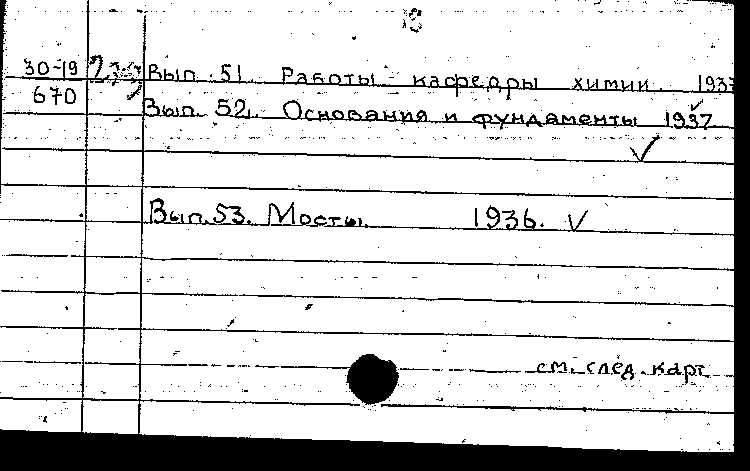 18
30-19 Вып. 51. Работы кафедры химии. 1937
670 Вып. 52. Основания и фундаменты 1937
Вып. 53. Мосты. 1936.
см. след. карт.